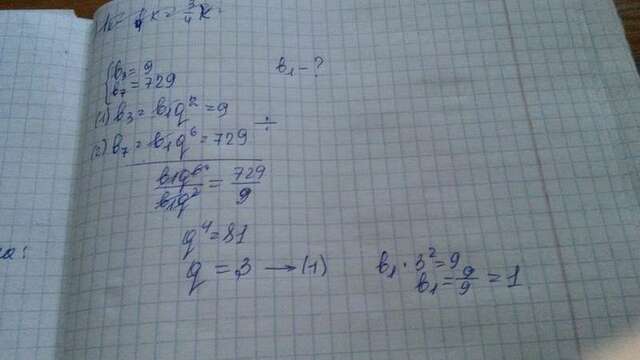 { b₃ = 9
b₇ = 729
b₁ - ?
(1) b₃ = b₁q² = 9
(2) b₇ = b₁q⁶ = 729 ÷
b₁q⁶ / b₁q² = 729 / 9
q⁴ = 81
q = 3 → (1)
b₁ · 3² = 9
b₁ = 9/9 = 1